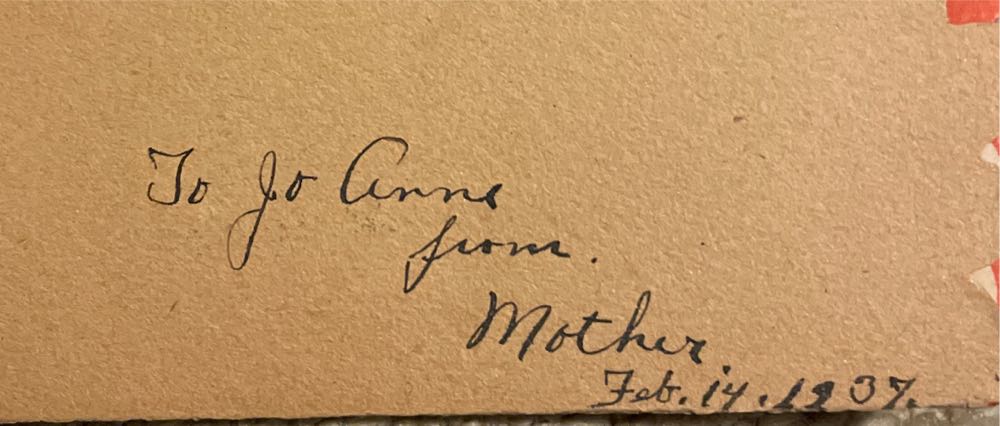 To Jo Anne
from.
Mother.
Feb. 14. 1937.